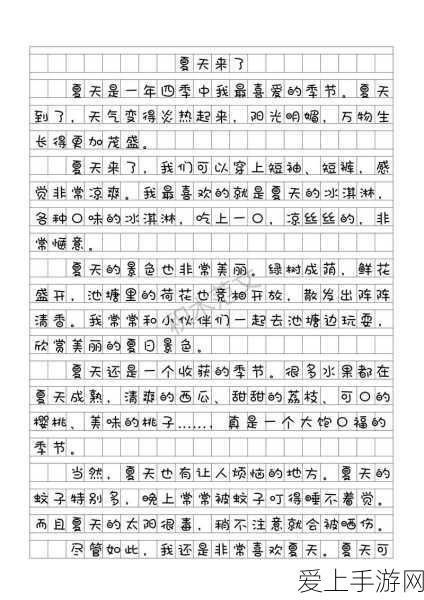 夏天来了
夏天是一年四季中我最喜爱的季节。夏天
到了，天气变得炎热起来，阳光明媚，万物生
长得更加茂盛。
夏天来了，我们可以穿上短袖、短裤，感
觉非常凉爽。我最喜欢的就是夏天的冰淇淋，
各种口味的冰淇淋，吃上一口，凉丝丝的，非
常惬意。
夏天的景色也非常美丽。绿树成荫，鲜花
盛开，池塘里的荷花也竞相开放，散发出阵阵
清香。我常常和小伙伴们一起去池塘边玩耍，
欣赏美丽的夏日景色。
夏天还是一个收获的季节。很多水果都在
夏天成熟，清爽的西瓜、甜甜的荔枝、可口的
樱桃、美味的桃子……，真是一个大饱口福的
季节。
当然，夏天也有让人烦恼的地方。夏天的
蚊子特别多，晚上常常被蚊子叮得睡不着觉。
而且夏天的太阳很毒，稍不注意就会被晒伤。
尽管如此，我还是非常喜欢夏天。夏天可
爱上手游网